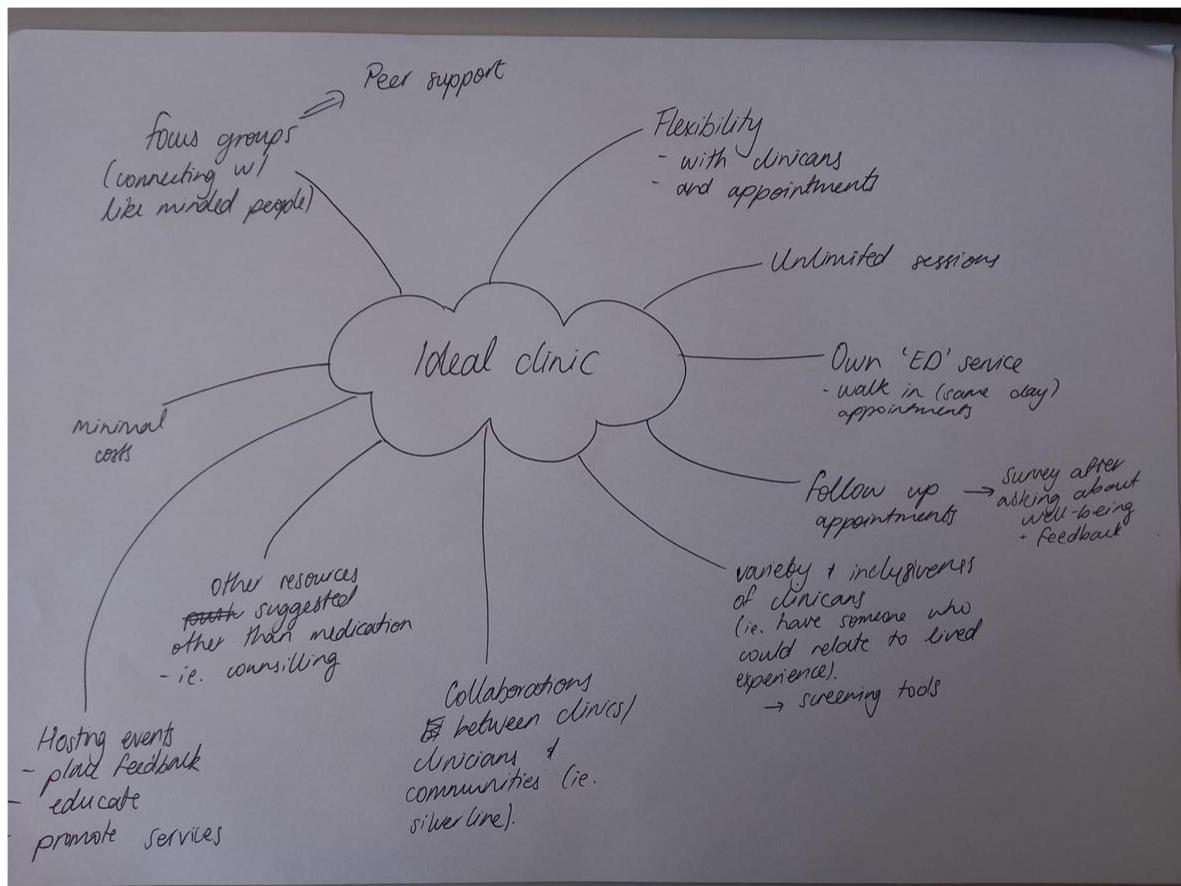 Ideal clinic
Focus groups
(connecting w/
like minded people)
Peer support
Flexibility
- with clinicans
- and appointments
Unlimited sessions
Own 'ED' service
- walk in (same day)
appointments
Follow up
appointments
→ survey after
asking about
well-being
+ feedback
variety + inclusiveness
of clinicans
(ie. have someone who
could relate to lived
experience).
→ screening tools
Collaborations
between clinics/
clinicians +
communities (ie.
silverline).
other resources
suggested
other than medication
- ie. counsilling
Hosting events
- feedback
- educate
- promote services
minimal
costs